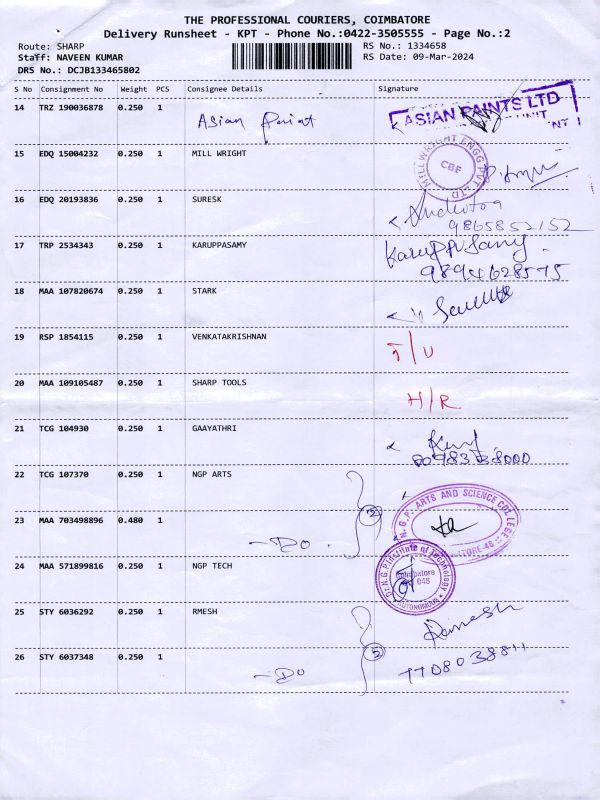 THE PROFESSIONAL COURIERS, COIMBATORE
Delivery Runsheet - KPT - Phone No.:0422-3505555 - Page No.:2
Route: SHARP
Staff: NAVEEN KUMAR
DRS No.: DCJB133465802
RS No.: 1334658
RS Date: 09-Mar-2024
S No Consignment No Weight PCS Consignee Details Signature
14 TRZ 190036878 0.250 1 Asian Paint ASIAN PAINTS LTD
15 EDQ 15004232 0.250 1 MILL WRIGHT MILLWRIGHT ENGG PVT LTD CBE
16 EDQ 20193836 0.250 1 SURESK
9865852152
17 TRP 2534343 0.250 1 KARUPPASAMY Karuppusamy
9894628575
18 MAA 107820674 0.250 1 STARK
19 RSP 1854115 0.250 1 VENKATAKRISHNAN I/U
20 MAA 109105487 0.250 1 SHARP TOOLS H/R
21 TCG 104930 0.250 1 GAAYATHRI
22 TCG 107370 0.250 1 NGP ARTS N.G.P. ARTS AND SCIENCE COLLEGE
23 MAA 703498896 0.480 1 -Do.
24 MAA 571899816 0.250 1 NGP TECH Dr. N.G.P. Institute of Technology Coimbatore 048 AUTONOMOUS
25 STY 6036292 0.250 1 RMESH Ramesh
26 STY 6037348 0.250 1 -Do 7708038811